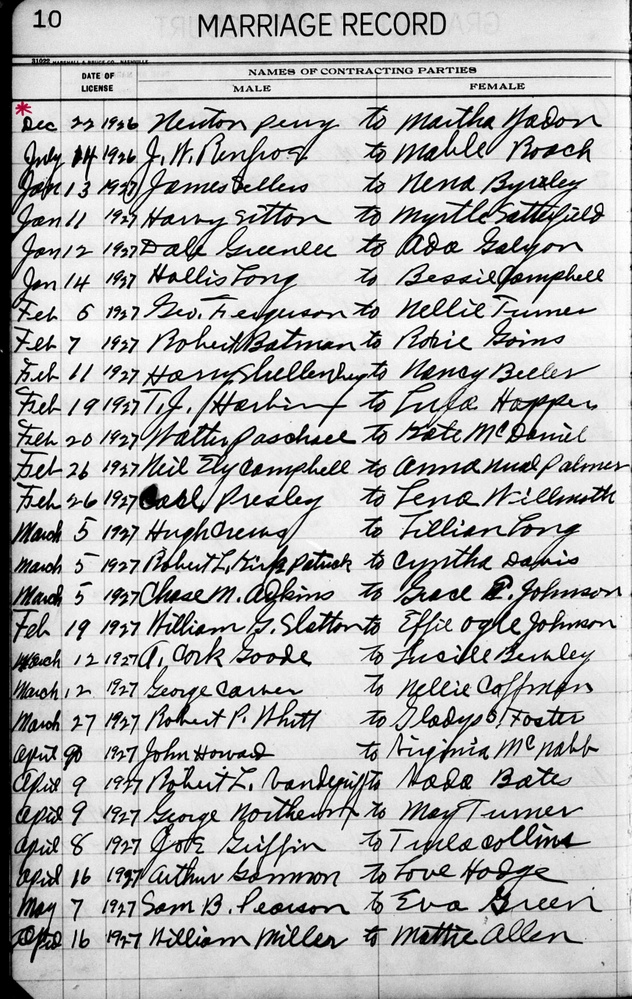 10
MARRIAGE RECORD
31022 MARSHALL & BRUCE CO. NASHVILLE
NAMES OF CONTRACTING PARTIES
DATE OF LICENSE MALE FEMALE
*
Dec 22 1926 Newton Perry to Martha Yadon
July 14 1926 J. W. Renfroe to Mable Roach
Jan 13 1927 James Sellers to Nena
Jan 11 1927 Harry Sitton to Myrtle Satterfield
Jan 12 1927 Dale Greenlee to Ada Galyon
Jan 14 1927 Hollis Long to Bessie Campbell
Feb 6 1927 Geo. Ferguson to Nellie Turner
Feb 7 1927 Robert Batman to Goins
Feb 11 1927 Harry to Nancy Beeler
Feb 19 1927 T. J. Harbin to Hopper
Feb 20 1927 Walter Paschael to Kate McDaniel
Feb 26 1927 Neil Ely Campbell to Anna Mud Palmer
Feb 26 1927 Carl Presley to Lena Willmoth
March 5 1927 Hugh Crews to Lillian Long
March 5 1927 Robert L. Kirkpatrick to Cyntha Davis
March 5 1927 Chase M. Adkins to Grace E. Johnson
Feb 19 1927 William G. Slatton to Effie Ogle Johnson
March 12 1927 A. Cork Goode to Lucille
March 12 1927 George Carver to Nellie Coffman
March 27 1927 Robert P. Whitt to Gladys Foster
April 1927 John Howard to Virginia McNabb
April 9 1927 Robert L. Vandegriff to Bates
April 9 1927 George Northern to May Turner
April 8 1927 Joe Griffin to Trula Collins
April 16 1927 Arthur Gammon to Love Hodge
May 7 1927 Sam B. Pearson to Eva Green
April 16 1927 William Miller to Mattie Allen